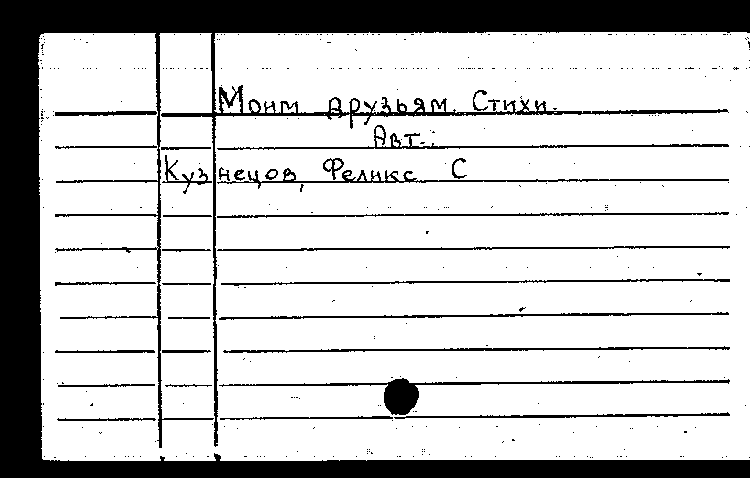 Моим друзьям. Стихи.
Авт.:
Кузнецов, Феликс С